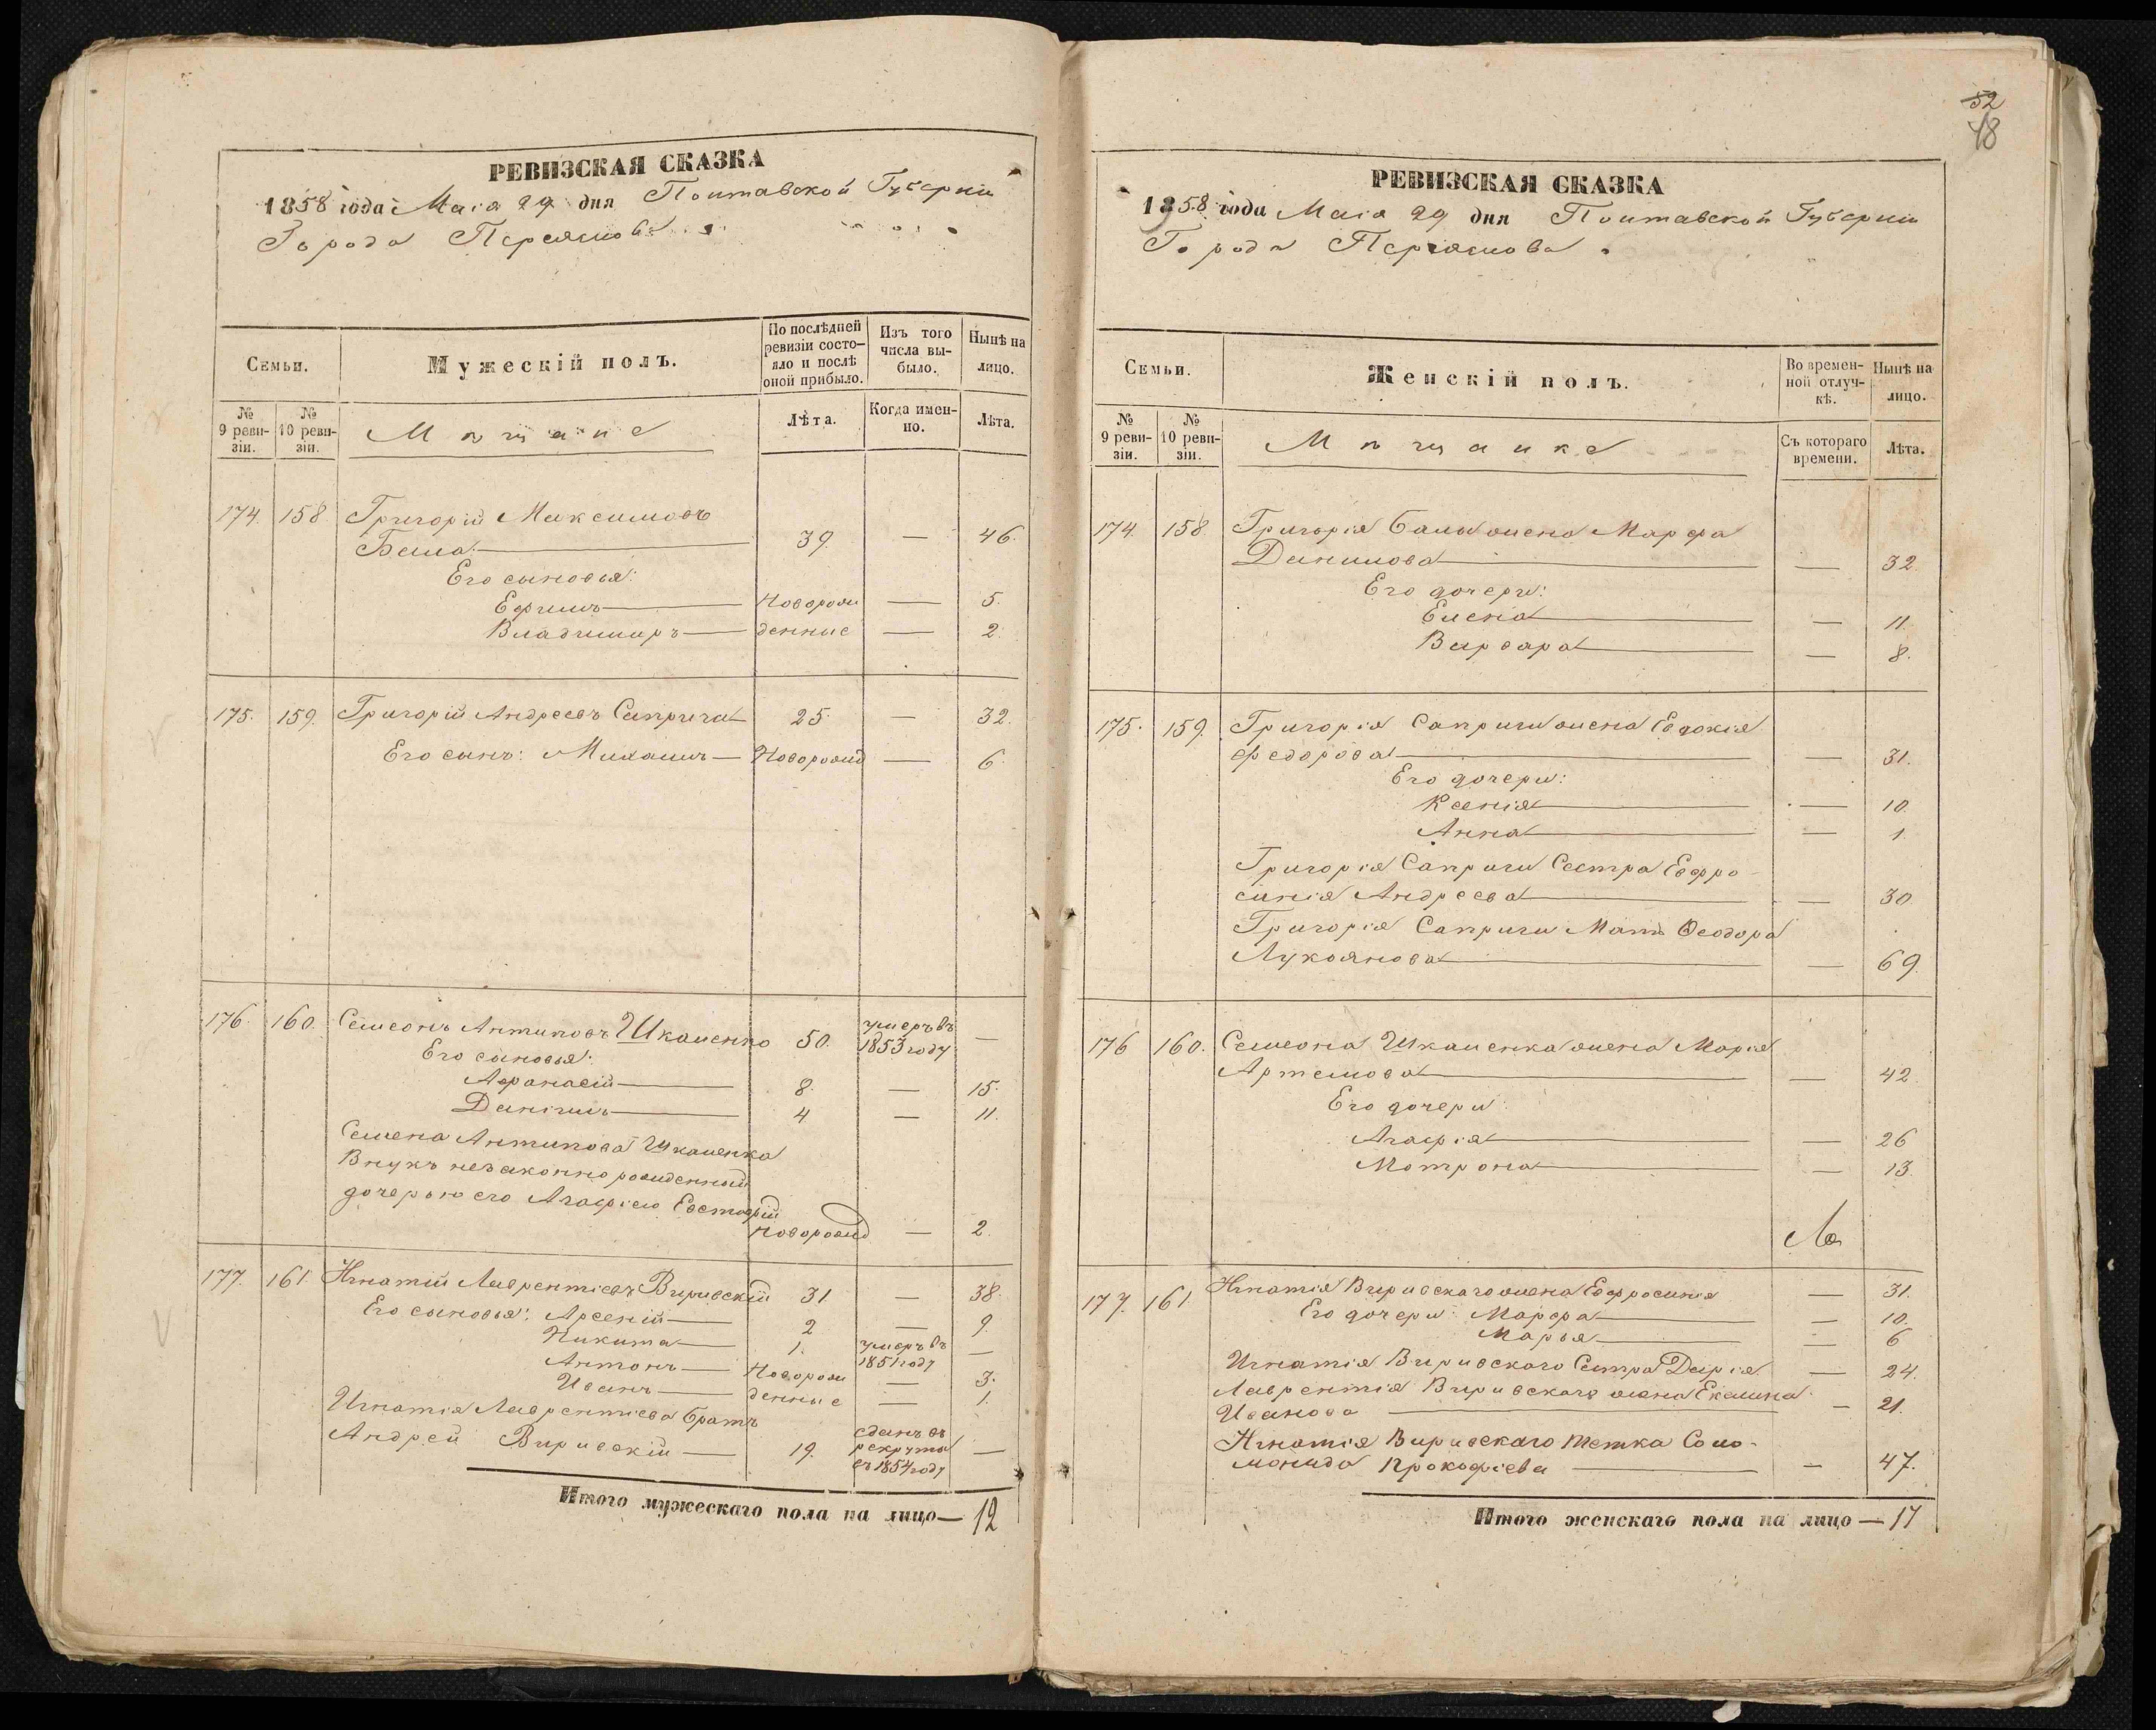 РЕВИЗСКАЯ СКАЗКА
1858 года Маія 29 дня Полтавской Губерніи
Города Переяслова
Семьи.
Мужескій полъ.
По послѣдней ревизіи состояло и послѣ оной прибыло.
Изъ того числа выбыло.
Нынѣ на лицо.
№ 9 ревизіи.
№ 10 ревизіи.
Мѣщане
Лѣта.
Когда именно.
Лѣта.
174. 158. Григорій Максимовъ
Бала 39. — 46.
Его сыновья:
Ефимъ Новорож — 5.
Владимиръ денные — 2.
175. 159. Григорій Андреевъ Сапрыга 25. — 32.
Его сынъ: Михаилъ Новорожд — 6.
176. 160. Семеонъ Антиповъ Шкаленко 50. умеръ въ 1853 году —
Его сыновья:
Афанасій 8. — 15.
Даніилъ 4 — 11.
Семена Антипова Шкаленка
Внукъ незаконнорожденный
дочерью его Агафіею Евстафій
Новорожд — 2.
177. 161. Игнатій Лаврентіевъ Виривскій 31 — 38.
Его сыновья: Арсеній 2 — 9.
Никита 1. умеръ въ 1851 году —
Антонъ Новорож — 3.
Иванъ денные — 1.
Игнатія Лаврентіева братъ
Андрей Виривскій 19. сданъ въ рекруты въ 1854 году —
Итого мужескаго пола на лицо — 12
52
48
РЕВИЗСКАЯ СКАЗКА
1858 года Маія 29 дня Полтавской Губерніи
Города Переяслова
Семьи.
Женскій полъ.
Во временной отлучкѣ.
Нынѣ на лицо.
№ 9 ревизіи.
№ 10 ревизіи.
Мѣщанке
Съ котораго времени.
Лѣта.
174. 158. Григорія Балы жена Марфа
Данилова — 32.
Его дочери:
Елена — 11.
Варвара — 8.
175. 159. Григорія Сапрыги жена Евдокія
Федорова — 31.
Его дочери:
Ксенія — 10.
Анна — 1.
Григорія Сапрыги Сестра Евфро-
синія Андреева — 30.
Григорія Сапрыги Мать Феодора
Лукьянова — 69.
176 160. Семеона Шкаленка жена Марія
Артемова — 42.
Его дочери:
Агафія — 26
Мотрона — 13.
177. 161 Игнатія Виривскаго жена Евфросинія — 31.
Его дочери: Марфа — 10.
Марья — 6
Игнатія Виривскаго Сестра Дарія — 24.
Лаврентія Виривскаго жена
Иванова — 21.
Игнатія Виривскаго тетка Соло-
монида Прокофіева — 47.
Итого женскаго пола на лицо — 17